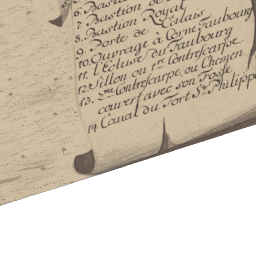 6. Bastion de
7. Bastion Royal
8. Bastion de Celais
9. Porte de
10. Ouvrage à Corne Faubourg
11. l'Ecluse du Faubourg
12. Sillon ou 1re Contrescarpe
13. 2me Contrescarpe, ou Chemin
couvert avec son Fossé
14. Canal du Fort St. Philippe